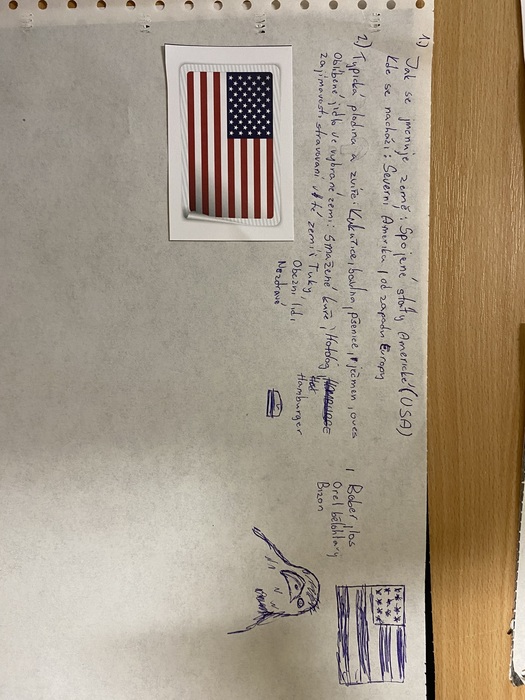 1) Jak se jmenuje země: Spojené státy Americké (USA)
Kde se nachází: Severní Amerika, od západu Evropy
2) Typická plodina a zvíře: Kukuřice, bavlna, pšenice, ječmen, oves | Bober, los
Orel bělohlavý
Bizon
Oblíbené jídlo ve vybrané zemi: Smažené kuře, Hotdog,
Hamburger
zajímavosti stravování v té zemi: Tuky
Obezní lidi
Nezdravé